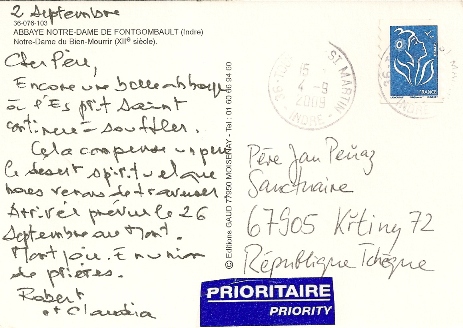 2 Septembre
36-076-103
ABBAYE NOTRE-DAME DE FONTGOMBAULT (Indre).
Notre-Dame du Bien-Mourir (XIIe siècle).
Cher Père,
Encore une belle abbaye
où l'Esprit Saint
continue à souffler.
Cela compense un peu
le désert spirituel que
nous venons de traverser
Arrivée prévue le 26
Septembre au Mont.
Mont joie. En union
de prières.
Robert
et Claudia
© Editions GAUD 77950 MOISENAY - Tél : 01 60 66 94 60
ST MARTIN
15
4 - 9
2009
INDRE
FRANCE
Père Jan Peňaz
Sanctuaire
67905 Křtiny 72
République Tchèque
PRIORITAIRE
PRIORITY